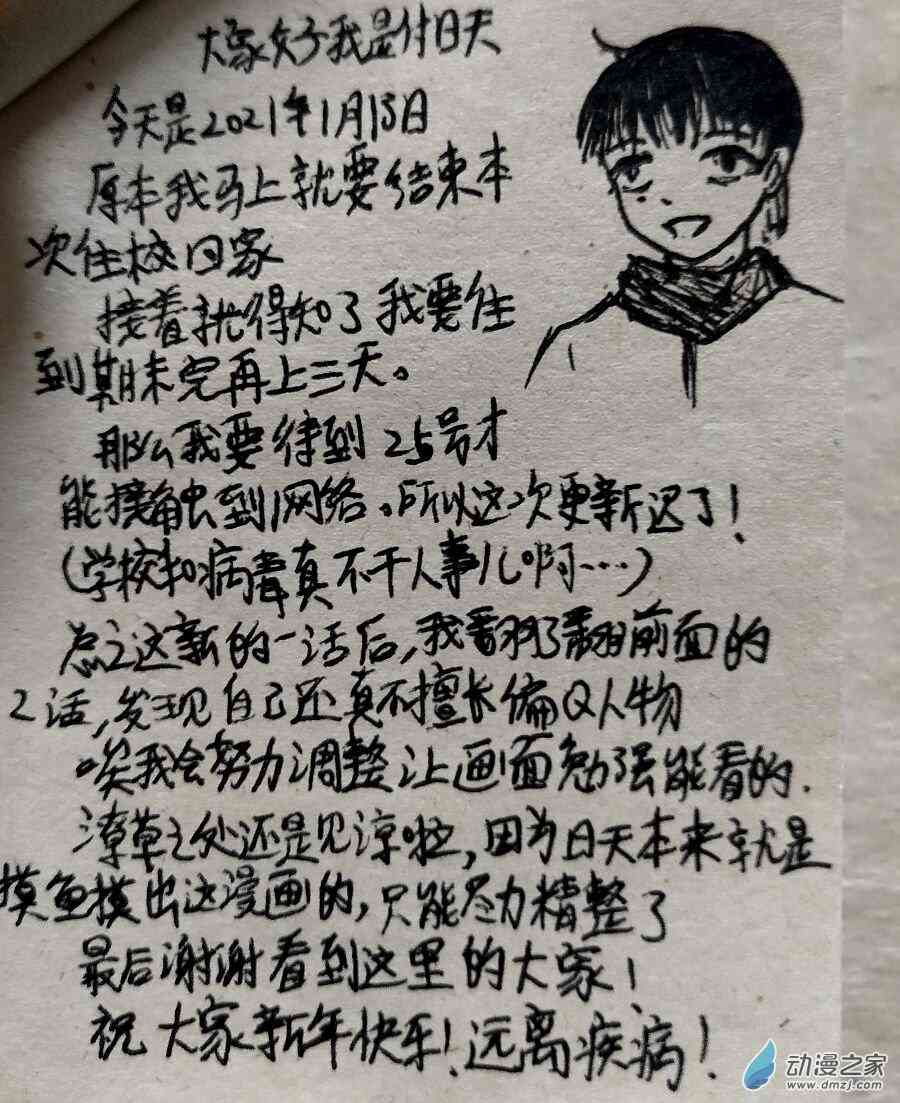 大家好我是付日天
今天是2021年1月13日
原本我马上就要结束本
次住校回家
接着就得知了我要住
到期末完再上三天。
那么我要待到25号才
能接触到网络。所以这次更新迟了！
(学校和病毒真不干人事儿啊……)
总之这新的一话后，我看了翻前面的
2话，发现自己还真不擅长偏Q人物
唉我会努力调整让画面勉强能看的.
潦草之处还是见谅啦，因为日天本来就是
摸鱼摸出这漫画的，只能尽力精整了
最后谢谢看到这里的大家！
祝大家新年快乐！远离疾病！
动漫之家
www.dmzj.com